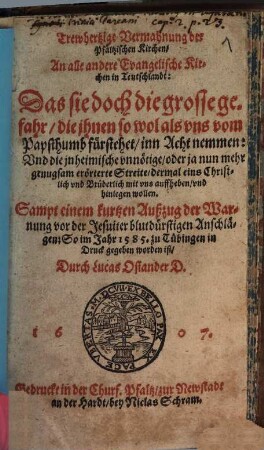 Trewhertzige Vermahnung der
Pfältzischen Kirchen/
An alle andere Evangelische Kir-
chen in Teutschlandt:
Das sie doch die grosse ge-
fahr/ die ihnen so wol als vns vom
Papsthumb fürstehet/ inn Acht nemmen:
Vnd die inheimische vnnötige/ oder ja nun mehr
genugsam erörterte Streite/ dermal eins Christ-
lich vnd Brüderlich mit vns auffheben/ vnd
hinlegen wollen.
Sampt einem kurtzen Außzug der War-
nung vor der Jesuiter blutdürstigen Anschlä-
gen: So im Jahr 1585. zu Tübingen in
Druck gegeben worden ist/
Durch Lucas Osiander D.
1 6 0 7.
Gedruckt in der Churf. Pfaltz/ zur Newstadt
an der Hardt/ bey Niclas Schram.